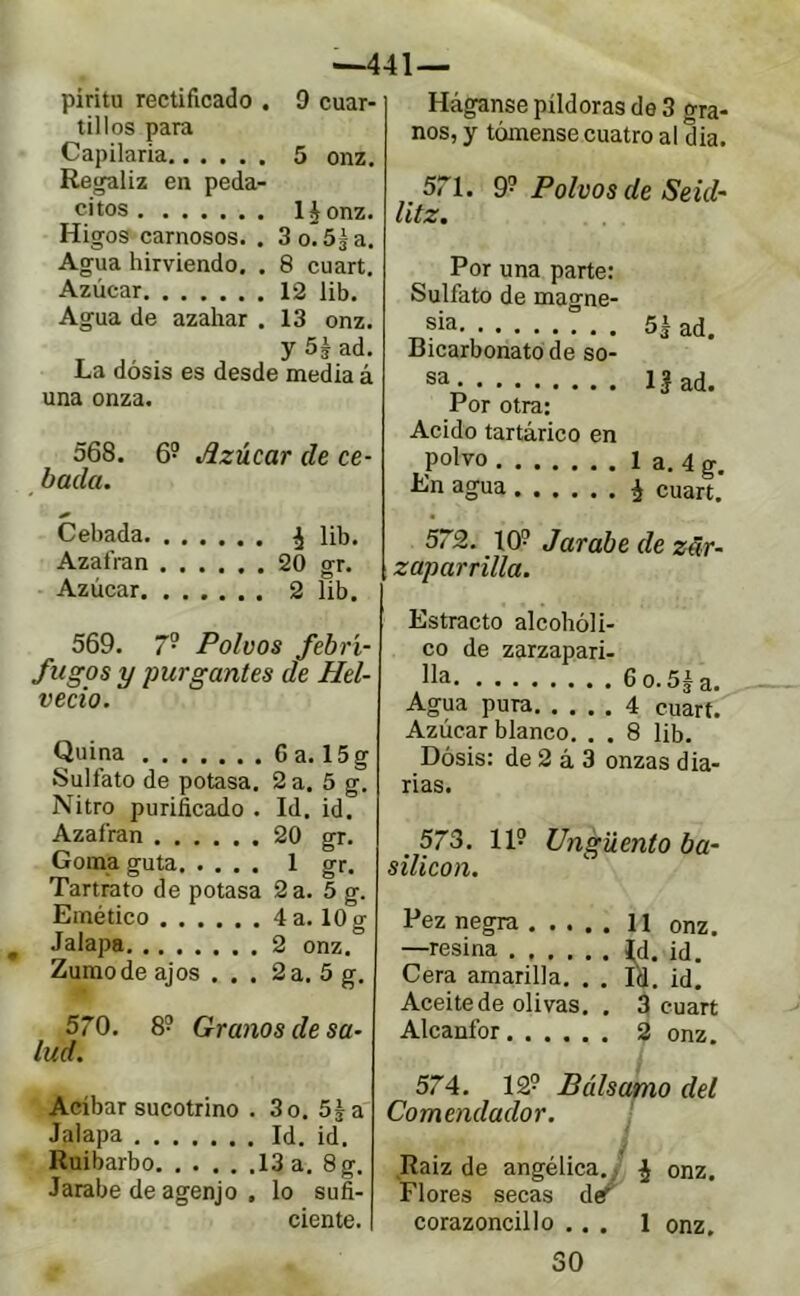 —441—
piritu rectificado . 9 cuar-
tillos para
Capilaria. . . . . . 5 onz.
Regaliz en peda-
citos . . . . . . . 1½ onz.
Higos carnosos. . 3 o. 5⅓ a.
Agua hirviendo. . 8 cuart.
Azúcar. . . . . . . 12 lib.
Agua de azahar . 13 onz.
y 5⅓ ad.
La dósis es desde media á
una onza.
568. 6º Azúcar de ce-
bada.
Cebada. . . . . . . ½ lib.
Azafran . . . . . . 20 gr.
Azúcar. . . . . . . 2 lib.
569. 7º Polvos febrí-
fugos y purgantes de Hel-
vecio.
Quina . . . . . . . 6 a. 15 g
Sulfato de potasa. 2 a. 5 g.
Nitro purificado . Id. id.
Azafran . . . . . . 20 gr.
Goma guta. . . . . 1 gr.
Tartrato de potasa 2 a. 5 g.
Emético . . . . . . 4 a. 10 g
Jalapa. . . . . . . . 2 onz.
Zumo de ajos . . . 2 a. 5 g.
570. 8º Granos de sa-
lud.
Acíbar sucotrino . 3 o. 5⅓ a
Jalapa . . . . . . . Id. id.
Ruibarbo. . . . . .13 a. 8 g.
Jarabe de agenjo . lo sufi-
ciente.
Háganse píldoras de 3 gra-
nos, y tómense cuatro al dia.
571. 9º Polvos de Seid-
litz.
Por una parte:
Sulfato de magne-
sia. . . . . . . . . 5⅓ ad.
Bicarbonato de so-
sa . . . . . . . . . 1⅔ ad.
Por otra:
Acido tartárico en
polvo . . . . . . . 1 a. 4 g.
En agua . . . . . . ½ cuart.
572. 10º Jarabe de zar-
zaparrilla.
Estracto alcohóli-
co de zarzapari-
lla. . . . . . . . . 6 o. 5⅓ a.
Agua pura. . . . . 4 cuart.
Azúcar blanco. . . 8 lib.
Dósis: de 2 á 3 onzas dia-
rias.
573. 11º Ungüento ba-
silicon.
Pez negra . . . . . 11 onz.
—resina . . . . . . Id. id.
Cera amarilla. . . Id. id.
Aceite de olivas. . 3 cuart
Alcanfor . . . . . . 2 onz.
574. 12º Bálsamo del
Comendador.
Raiz de angélica. ½ onz.
Flores secas de
corazoncillo . . . 1 onz.
30